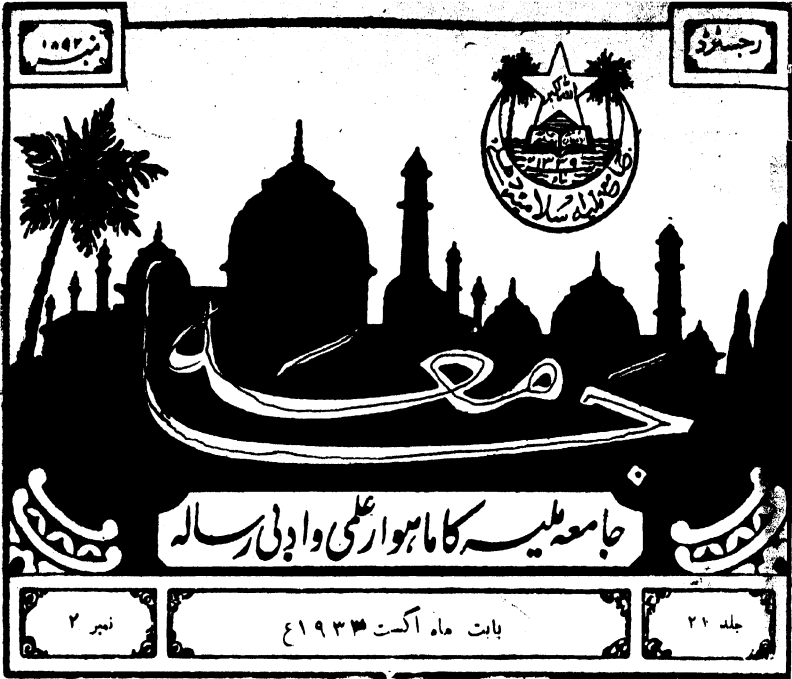 رجسٹرڈ
نمبر ۱۸۹۲
اللہ اکبر
۱۳۳۹
جامعہ ملیہ اسلامیہ دہلی
جامعہ
جامعہ ملیہ کا ماہوار علمی و ادبی رسالہ
جلد ۲۱
بابت ماہ اگست ۱۹۳۳ع
نمبر ۲